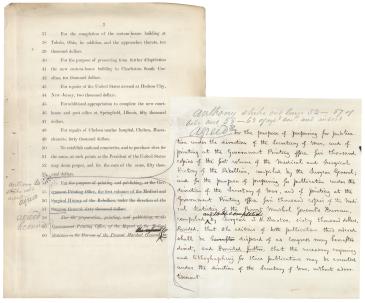 3
37 For the completion of the custom-house building at
38 Toledo, Ohio, in addition, and the approaches thereto, ten
39 thousand dollars.
40 For the purpose of preserving from further dilapidation
41 the new custom-house building in Charleston South Car-
42 olina, ten thousand dollars.
43 For repairs of the United States arsenal at
44 New Jersey, two thousand dollars.
45 For additional appropriation to complete the new court-
46 house and post office at Springfield, Illinois, fifty thousand
47 dollars.
48 For repairs of Chelsea marine hospital, Chelsea, Massa-
49 chusetts, sixty thousand dollars.
50 To establish national cemeteries, and to purchase sites for
51 the same, at such points as the President of the United States
52 may deem proper, and for the care of the same, fifty thou-
53 sand dollars.
54 For the purpose of printing and publishing, at the Gov-
55 ernment Printing Office, the first volumes of the Medical and
56 Surgical History of the Rebellion, under the direction of the
57 Surgeon General, sixty thousand dollars.
58 For the preparing, printing, and publishing, at the
59 Government Printing Office, of the Report of the
60 Statistics in the Bureau of the Provost Marshal General
anthony
agreed
anthony strike out lines 52–57 of
and insert
agreed
For the purpose of preparing for publica-
tion under the direction of the Secretary of War, and of
printing at the Government Printing office five thousand
copies of the first volume of the Medical and Surgical
History of the Rebellion, compiled by the Surgeon General;
and for the purpose of preparing for publication under the
direction of the Secretary of War, and of printing at the
Government Printing Office five thousand copies of the Medi-
cal Statistics of the Provost Marshal General's Bureau,
compiled by
Provided, that the editions of both publication thus ordered
shall be disposed of as congress may hereafter
direct, and Provided further, that the necessary engraving
and lithographing for those publications may be executed
under the direction of the Secretary of War, without adver-
tisement